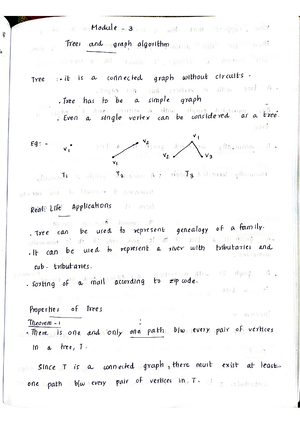 Module - 3
Trees and graph algorithm
Tree : • it is a connected graph without circuits.
• Tree has to be a simple graph
• Even a single vertex can be considered as a tree
Eg: -
V1 V2 V1
V1 V2 V3
T1 T2 T3
Real Life Applications
• Tree can be used to represent genealogy of a family.
• It can be used to represent a river with tributaries and
sub-tributaries.
• Sorting of a mail according to zip code.
Properties of trees
Theorem - 1
• There is one and only one path b/w every pair of vertices
in a tree, T.
Since T is a connected graph, there must exist at least
one path b/w every pair of vertices in T.